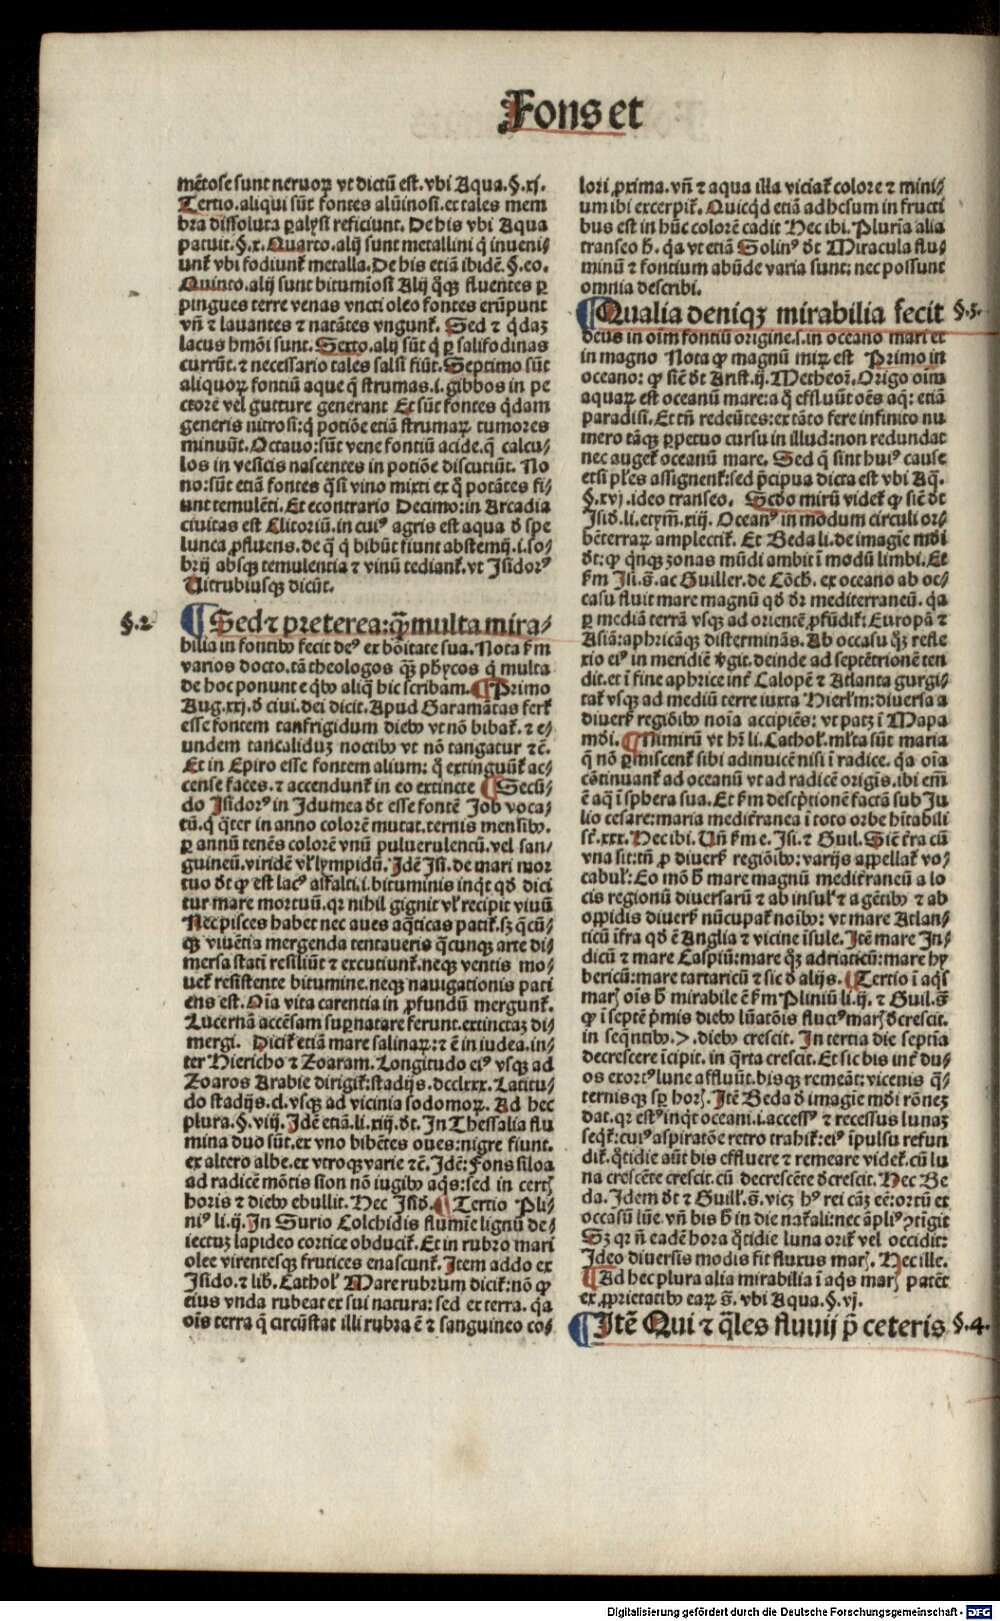 Fons et
mētose sunt neruoꝝ vt dictū est. vbi Aqua. §. xj.
Tertio. aliqui sūt fontes alūinosi. et tales mem
bra dissoluta ꝑalysi reficiunt. De his vbi Aqua
patuit. §. x. Quarto. alij sunt metallini q̄ inueni⸗
unt᷑ vbi fodiunt᷑ metalla. De his etiā ibidē. §. eo.
Quinto. alij sunt bitumīosi Alij q̄qꝫ fluentes ꝑ
pingues terre venas vncti oleo fontes erūpunt
vn̄ ⁊ lauantes ⁊ natātes vngunt᷑. Sed ⁊ q̇daꝫ
lacus hmōi sunt. Sexto. alij sūt q̇ ꝑ salifodinas
currūt. ⁊ necessario tales salsi fiūt. Septimo sūt
aliquoꝝ fontiū aque q̄ strumas. i. gibbos in pe
ctore vel gutture generant Et sūt fontes q̇dam
generis nitrosi: q̇ potiōe etiā strumaꝝ tumores
minuūt. Octauo: sūt vene fontiū acide. q̄ calcu⸗
los in vesicis nascentes in potiōe discutiūt. No
no: sūt etiā fontes q̄si vino mixti ex q̇ potātes fi⸗
unt temulēti. Et econtrario Decimo: in Arcadia
ciuitas est Clitoriū. in cuiꝰ agris est aqua đ spe
lunca ꝓfluens. de q̄ q̇ bibūt fiunt abstemij. i. so⸗
brij absqꝫ temulentia ⁊ vinū tediant᷑. vt Isidorꝰ
Uitrubiusqꝫ dicūt.
§. 2
¶ Sed ⁊ preterea: qꝫ̄ multa mira⸗
bilia in fontibꝰ fecit deꝰ ex bōitate sua. Nota ẜm
varios docto. tā theologos qꝫ̄ phycos q̇ multa
de hoc ponunt e q̇bꝰ aliq̄ hic scribam. ¶ Primo
Aug. xxj. đ ciui. dei dicit. Apud Garamātas fert᷑
esse fontem tanfrigidum diebꝰ vt nō bibat᷑. ⁊ e⸗
undem tancaliduꝫ noctibꝰ vt nō tangatur ⁊c̄.
Et in Epiro esse fontem alium: q̇ extinguūt᷑ ac⸗
cense faces. ⁊ accendunt᷑ in eo extincte ¶ Secū⸗
do Isidorꝰ in Idumea đt esse fontē Job voca⸗
tū. q̇ q̄ter in anno colorē mutat. ternis mensibꝰ.
ꝑ annū tenēs colorē vnū puluerulentū. vel san⸗
guineū. viridē vl̓ lympidū. Idē Isi. de mari mor
tuo đt ꝙ est lacꝰ asfalti. i. bituminis inq̇t qđ dici
tur mare mortuū. qr nihil gignit vl̓ recipit viuū
Nec pisces habet nec aues aq̄ticas patit᷑. sꝫ q̄cū⸗
qꝫ viuētia mergenda tentaueris q̄cunqꝫ arte di⸗
mersa statī resiliūt ⁊ excutiunt᷑. neqꝫ ventis mo⸗
uet᷑ resistente bitumine. neqꝫ nauigationis pati
ens est. Oīa vita carentia in ꝓfundū mergunt᷑.
Lucernā accēsam suꝑnatare ferunt. extinctaꝫ di⸗
mergi. Dicit᷑ etiā mare salinaꝝ: ⁊ ē in iudea. in⸗
ter Hiericho ⁊ Zoaram. Longitudo eiꝰ vsqꝫ ad
Zoaros Arabie dirigit᷑: stadijs. dcclxxx. Latitu⸗
do stadijs. cl. vsqꝫ ad vicinia sodomoꝝ. Ad hec
plura. §. viij. Idē etiā. li. xiij. đt. In Thessalia flu
mina duo sūt. ex vno bibētes oues: nigre fiunt.
ex altero albe. ex vtroqꝫ varie ⁊c̄. Idē: Fons siloa
ad radicē mōtis sion nō iugibꝰ aq̇s: sed in certꝭ
horis ⁊ diebꝰ ebullit. Hec Isiđ. ¶ Tertio Pli⸗
niꝰ li. ij. In Surio Colchidis flumīe lignū de⸗
iectuꝫ lapideo cortice obducit᷑. Et in rubro mari
olee virentesqꝫ frutices enascunt᷑. Item addo ex
Isido. ⁊ lib. Cathol̓ Mare rubrum dicit᷑: nō ꝙ
eius vnda rubeat ex sui natura: sed ex terra. q̇a
oīs terra q̄ circūstat illi rubra ē ⁊ sanguineo co⸗
lori ꝓxima. vn̄ ⁊ aqua illa viciat᷑ colore ⁊ mini⸗
um ibi excerpit᷑. Quicq̇d etiā adhesum in fructi
bus est in hūc colorē cadit Hec ibi. Pluria alia
transeo h̄. q̇a vt etiā Solinꝰ đt Miracula flu⸗
minū ⁊ fontium abūde varia sunt: nec possunt
omnia describi.
¶ Qualia deniqꝫ mirabilia fecit §. 3.
deus in oīm fontiū origine. s. in oceano mari et
in magno Nota ꝙ magnū miꝝ est Primo in
oceano: ꝙ sic̄ đt Arist. ij. Metheoꝝ. Origo oīm
aquaꝝ est oceanū mare: a q̇ effluūt oēs aq̄: etiā
paradisi. Et tn̄ redeūtes: ex tāto fere infinito nu
mero tāqꝫ ꝑpetuo cursu in illud: non redundat
nec auget᷑ oceanū mare. Sed q̄ sint huiꝰ cause
etsi pl̓es assignent᷑: sed p̄cipua dicta est vbi Aq̄.
§. xvj. ideo transeo. Scđo mirū videt᷑ ꝙ sic̄ đt
Isiđ. li. etym̄. xiij. Oceanꝰ in modum circuli or⸗
bē terraꝝ amplectit᷑. Et Beda li. de imagīe mūdi
đt: ꝙ q̇nqꝫ zonas mūdi ambit ī modū limbi. Et
ẜm Isi. s̄. ac Guiller. de Cōch. ex oceano ab oc⸗
casu fluit mare magnū qđ đr mediterraneū. q̇a
ꝑ mediā terrā vsqꝫ ad orientē ꝓfūdit᷑: Europā ⁊
Asiā: aphricāqꝫ disterminās. Ab occasu q̇ꝫ refle
xio eiꝰ in meridiē v̓git. deinde ad septētrionē ten
dit. et ī fine aphrice int᷑ Calopē ⁊ Atlanta gurgi⸗
tat᷑ vsqꝫ ad mediū terre iuxta Hierl̓m: diuersa a
diuers̓ regiōibꝰ noīa accipiēs: vt patꝫ ī Mapa
mūdi. ¶ Nimirū vt hr̄ li. Cathol̓. ml̓ta sūt maria
q̄ nō ꝑmiscent᷑ sibi adinuicē nisi ī radice. q̇a oīa
cōtinuant᷑ ad oceanū vt ad radicē origīs. ibi em̄
ē aq̄ ī sphera sua. Et ẜm descp̄tionē factā sub Ju
lio cesare: maria medit̓ranea ī toto orbe hītabili
st̄. xxx. Hec ibi. Un̄ ẜm e. Isi. ⁊ Guil. Sic̄ t̓ra cū
vna sit: tn̄ ꝓ diuers̓ regiōibꝰ: varijs appellat᷑ vo⸗
cabul̓: Eo mō h̄ mare magnū medit̓raneū a lo
cis regionū diuersarū ⁊ ab insul̓ ⁊ a gētibꝰ ⁊ ab
oppidis diuers̓ nūcupat᷑ noībꝰ: vt mare Atlan⸗
ticū īfra qđ ē Anglia ⁊ vicine īsule. Itē mare In⸗
dicū ⁊ mare Caspiū: mare q̇ꝫ adriaticū: mare hy
bericū: mare tartaricū ⁊ sic đ alijs. ¶ Tertio ī aq̇s
marꝭ oīs h̄ mirabile ē ẜm Pliniū li. ij. ⁊ Guil. s̄
ꝙ ī septē p̓mis diebꝰ lūatōis fluctꝰ marꝭ đcrescit.
in seq̄ntibꝰ. 7. diebꝰ crescit. In tertia die septīa
decrescere īcipit. in q̄rta crescit. Et sic bis int᷑ du⸗
os exortꝰ lune affluūt. bisqꝫ remeāt: vicenis q̄⸗
ternisqꝫ sꝑ horꝭ. Itē Beda đ imagīe mūdi rōneꝫ
dat. qr estꝰ inq̇t oceani. i. accessꝰ ⁊ recessus lunaꝫ
seq̇t᷑: cuiꝰ aspiratōe retro trahit᷑: eiꝰ īpulsu refun
dit᷑. q̇tidie aūt bis effluere ⁊ remeare videt᷑. cū lu
na crescēte crescit. cū decrescēte đcrescit. Hec Be
da. Idem đt ⁊ Guill̓. s̄. vicꝫ hꝰ rei cāꝫ eē: ortū et
occasū lūe. vn̄ bis h̄ in die nat᷑ali: nec āpliꝰ ꝯtigit
Sꝫ qr n̄ eadē hora q̇tidie luna orit᷑ vel occidit:
Ideo diuersis modis fit fluxus marꝭ. Hec ille.
¶ Ad hec plura alia mirabilia ī aq̇s marꝭ patēt
ex ꝓprietatibꝰ eaꝝ s̄. vbi Aqua. §. vj.
¶ Itē Qui ⁊ q̄les fluuij p̄ ceteris §. 4.
Digitalisierung gefördert durch die Deutsche Forschungsgemeinschaft - DFG